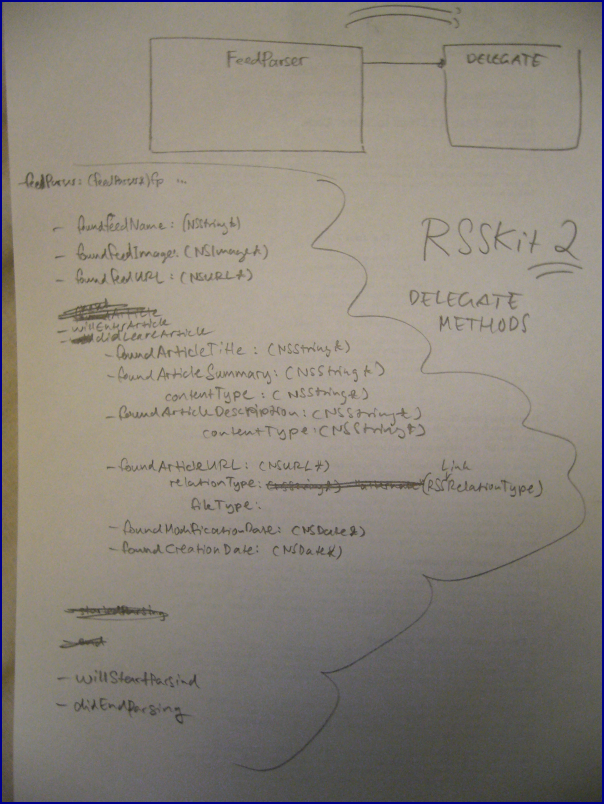 FeedParser
DELEGATE
feedParser: (FeedParser*)fp ...
- foundFeedName: (NSString*)
- foundFeedImage: (NSImage*)
- foundFeedURL: (NSURL*)
RSSKit 2
DELEGATE
METHODS
- willEnterArticle
- didLeaveArticle
- foundArticleTitle: (NSString*)
- foundArticleSummary: (NSString*)
contentType: (NSString*)
- foundArticleDescription: (NSString*)
contentType: (NSString*)
- foundArticleURL: (NSURL*)
Link
relationType: (RSSRelationType)
fileType:
- foundModificationDate: (NSDate*)
- foundCreationDate: (NSDate*)
- startedParsing
- willStartParsind
- didEndParsing